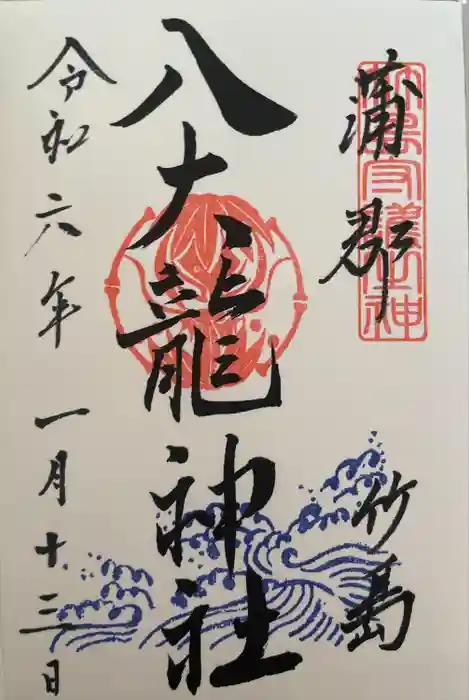 蒲郡
竹島
八大龍神社
令和六年一月十三日